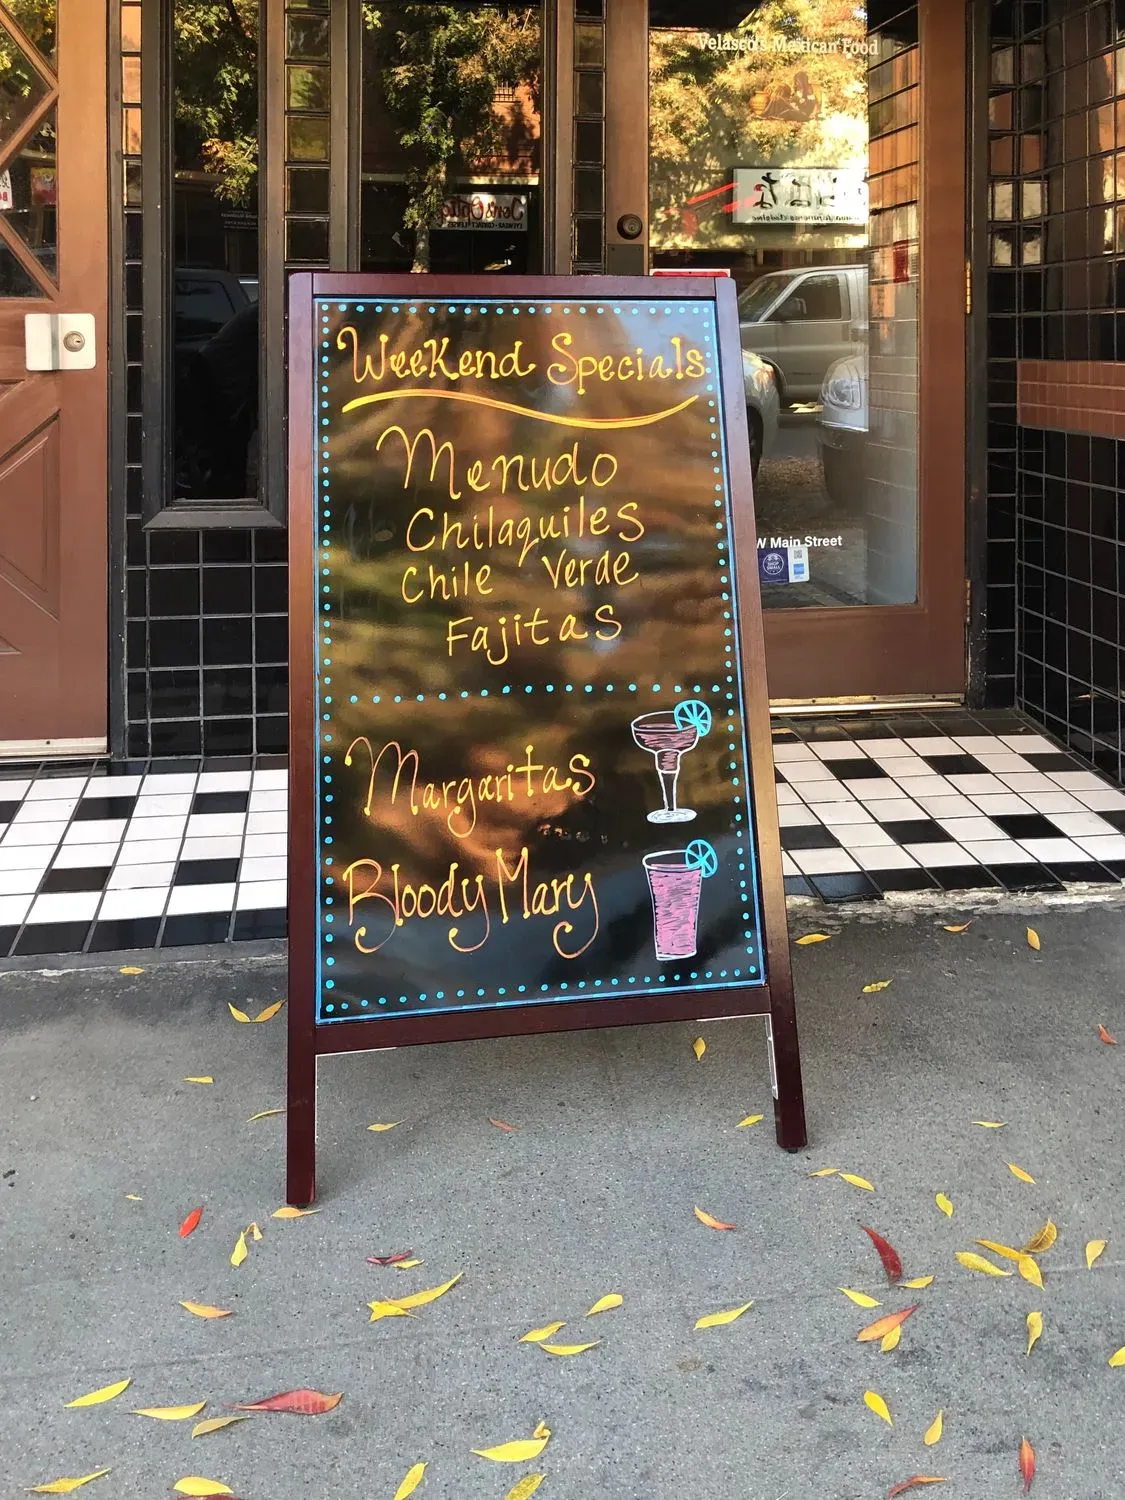 Velasco's Mexican Food
Weekend Specials
Menudo
Chilaquiles
Chile Verde
Fajitas
Margaritas
Bloody Mary
W Main Street
SHOP SMALL